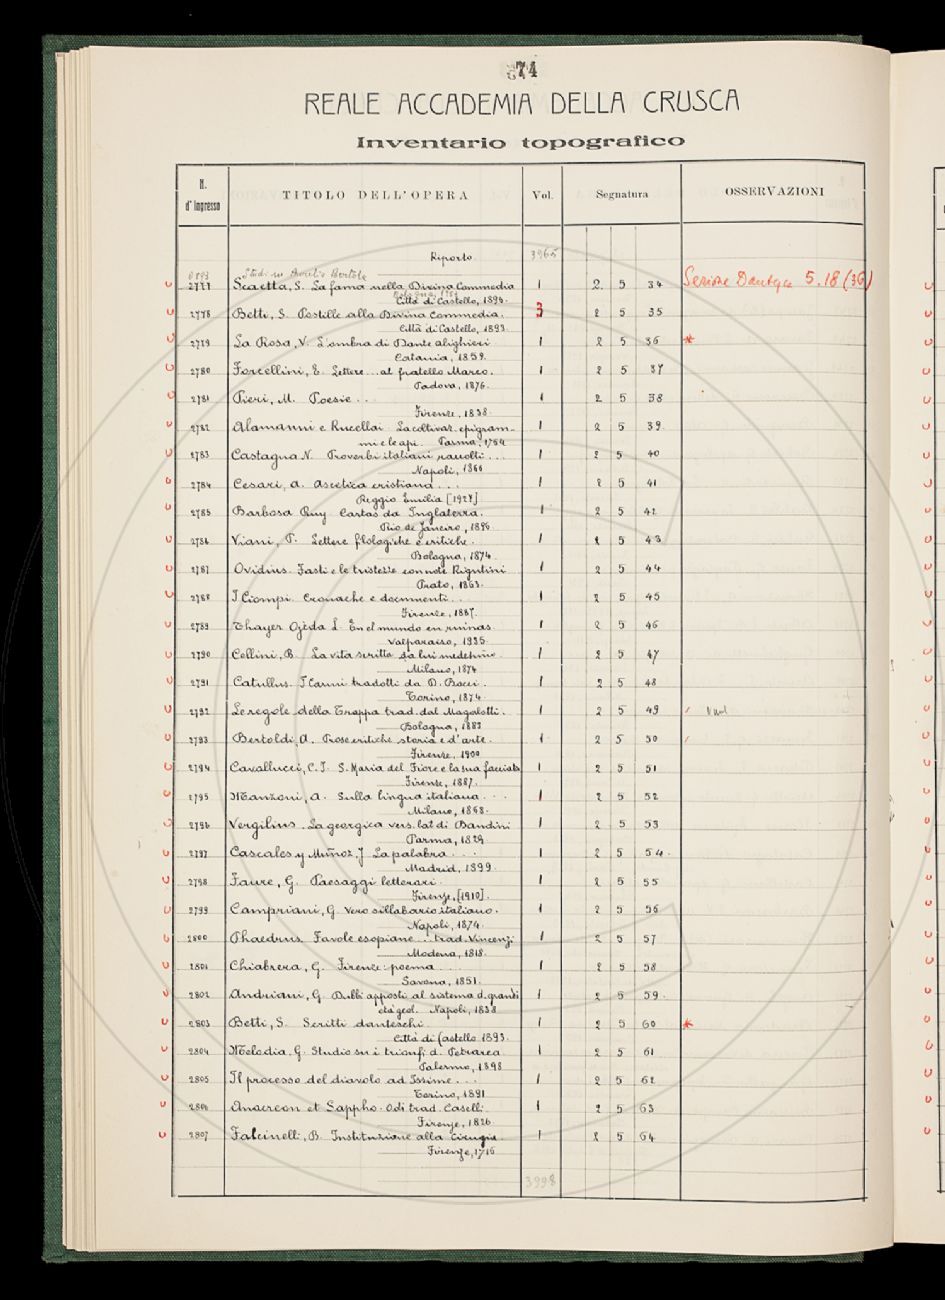 74
REALE ACCADEMIA DELLA CRUSCA
Inventario topografico
N. d'Ingresso TITOLO DELL'OPERA Vol. Segnatura OSSERVAZIONI
Riporto 3965
Studi su Aurelio Bertola
2777 Scaetta, S. La fama nella Divina Commedia 1 2 5 34 Sezione Dantesca 5.18 (36)
Città di Castello, 1896.
2778 Betti, S. Postille alla Divina Commedia. 3 2 5 35
Città di Castello, 1893.
2779 La Rosa, V. L'ombra di Dante alighieri 1 2 5 36 *
Catania, 1859.
2780 Forcellini, E. Lettere... al fratello Marco. 1 2 5 37
Padova, 1876.
2781 Pieri, M. Poesie... 1 2 5 38
Firenze, 1838.
2782 Alamanni e Rucellai La coltivaz. epigram- 1 2 5 39
mi e le api. Parma, 1764
2783 Castagna N. Proverbi italiani raccolti... 1 2 5 40
Napoli, 1866
2784 Cesari, A. Ascetica cristiana... 1 2 5 41
Reggio Emilia [1927]
2785 Barbosa Ruy Cartas da Inglaterra. 1 2 5 42
Rio de Janeiro, 1896
2786 Viani, P. Lettere filologiche e critiche. 1 2 5 43
Bologna, 1874.
2787 Ovidius. Fasti e le tristezze con note Rigutini 1 2 5 44
Prato, 1863.
2788 I Ciompi. Cronache e documenti... 1 2 5 45
Firenze, 1887.
2789 Thayer Ojeda L. En el mundo en ruinas. 1 2 5 46
Valparaiso, 1935.
2790 Cellini, B. La vita scritta da lui medesimo. 1 2 5 47
Milano, 1874
2791 Catullus. I Carmi tradotti da D. Bocci. 1 2 5 48
Torino, 1874.
2792 Le regole della Trappa trad. dal Magalotti. 1 2 5 49
Bologna, 1883
2793 Bertoldi, A. Prose critiche storia e d'arte. 1 2 5 50
Firenze, 1900
2794 Cavallucci, C.J. S. Maria del Fiore e la sua facciata 1 2 5 51
Firenze, 1887.
2795 Manzoni, A. Sulla lingua italiana... 1 2 5 52
Milano, 1868.
2796 Vergilius. La georgica vers. lat. di Bandini 1 2 5 53
Parma, 1829
2797 Cascales y Muñoz, J. La palabra... 1 2 5 54.
Madrid, 1899.
2798 Faure, G. Paesaggi letterari. 1 2 5 55
Firenze, [1910].
2799 Campriani, G. Vero sillabario italiano. 1 2 5 56
Napoli, 1874.
2800 Phaedrus. Favole esopiane... trad. Vincenzi 1 2 5 57
Modena, 1818.
2801 Chiabrera, G. Firenze: poema... 1 2 5 58
Savona, 1851.
2802 Andriani, G. Dubbi apposti al sistema d. grandi 1 2 5 59.
età geol. Napoli, 1838
2803 Betti, S. Scritti danteschi. 1 2 5 60 *
Città di Castello 1893.
2804 Melodia, G. Studio su i trionfi d. Petrarca 1 2 5 61
Palermo, 1898
2805 Il processo del diavolo ad Issime... 1 2 5 62
Torino, 1891
2806 Anacreon et Sappho. Odi trad. Caselli. 1 2 5 63
Firenze, 1826
2807 Falcinelli, B. Instituzione alla Cirugia. 1 2 5 64
Firenze, 1716
3998